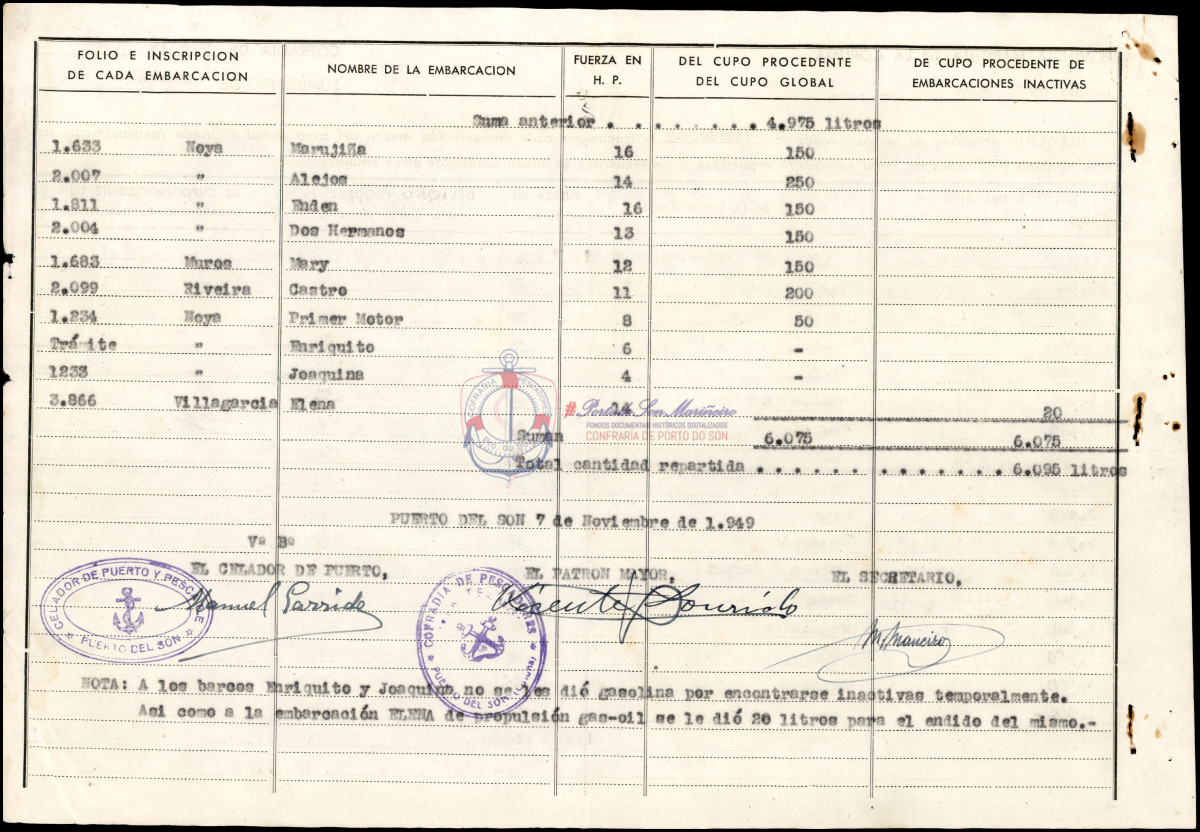 FOLIO E INSCRIPCION DE CADA EMBARCACION | NOMBRE DE LA EMBARCACION | FUERZA EN H. P. | DEL CUPO PROCEDENTE DEL CUPO GLOBAL | DE CUPO PROCEDENTE DE EMBARCACIONES INACTIVAS
Suma anterior . . . . . . . . 4.975 litros
1.633 Noya Marujiña 16 150
2.007 " Alejos 14 250
1.811 " Enden 16 150
2.004 " Dos Hermanos 13 150
1.683 Muros Mary 12 150
2.099 Riveira Castro 11 200
1.234 Noya Primer Motor 8 50
Trámite " Enriquito 6 -
1233 " Joaquina 4 -
3.866 Villagarcia Elena 14 20
#Porto do Son Mariñeiro
FONDOS DOCUMENTAIS HISTÓRICOS DIGITALIZADOS
CONFRARÍA DE PORTO DO SON
Suman 6.075 6.075
Total cantidad repartida . . . . . . . . . . . . . 6.095 litros
PUERTO DEL SON 7 de Noviembre de 1.949
Vº Bº
EL CELADOR DE PUERTO, EL PATRON MAYOR, EL SECRETARIO,
CELADOR DE PUERTO Y PESCA DE
PUERTO DEL SON
Manuel Garrido
COFRADÍA DE PESCADORES
PUERTO DEL SON
Vicente Sourido
M. Maneiro
NOTA: A los barcos Enriquito y Joaquina no se les dió gasolina por encontrarse inactivas temporalmente.
Asi como a la embarcación ELENA de propulsión gas-oil se le dió 20 litros para el endido del mismo.-